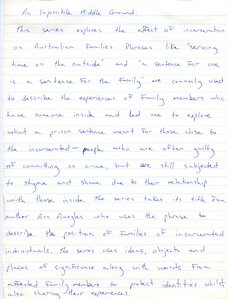 An Impossible Middle Ground:
This series explores the affect of incarceration
on Australian Families. Phrases like "serving
time on the outside" and "a sentence for one
is a sentence for the family" are commonly used
to describe the experiences of family members who
have someone inside and led me to explore
what a prison sentence meant for those close to
the incarcerated - people who are often guilty
of committing no crime, but are still subjected
to stigma and shame due to their relationship
with those inside. The series takes its title from
author Ann Aungles who uses the phrase to
describe the position of families of incarcerated
individuals. The series uses ideas, objects and
places of significance along with words from
affected family members to protect identities whilst
also sharing their experiences.